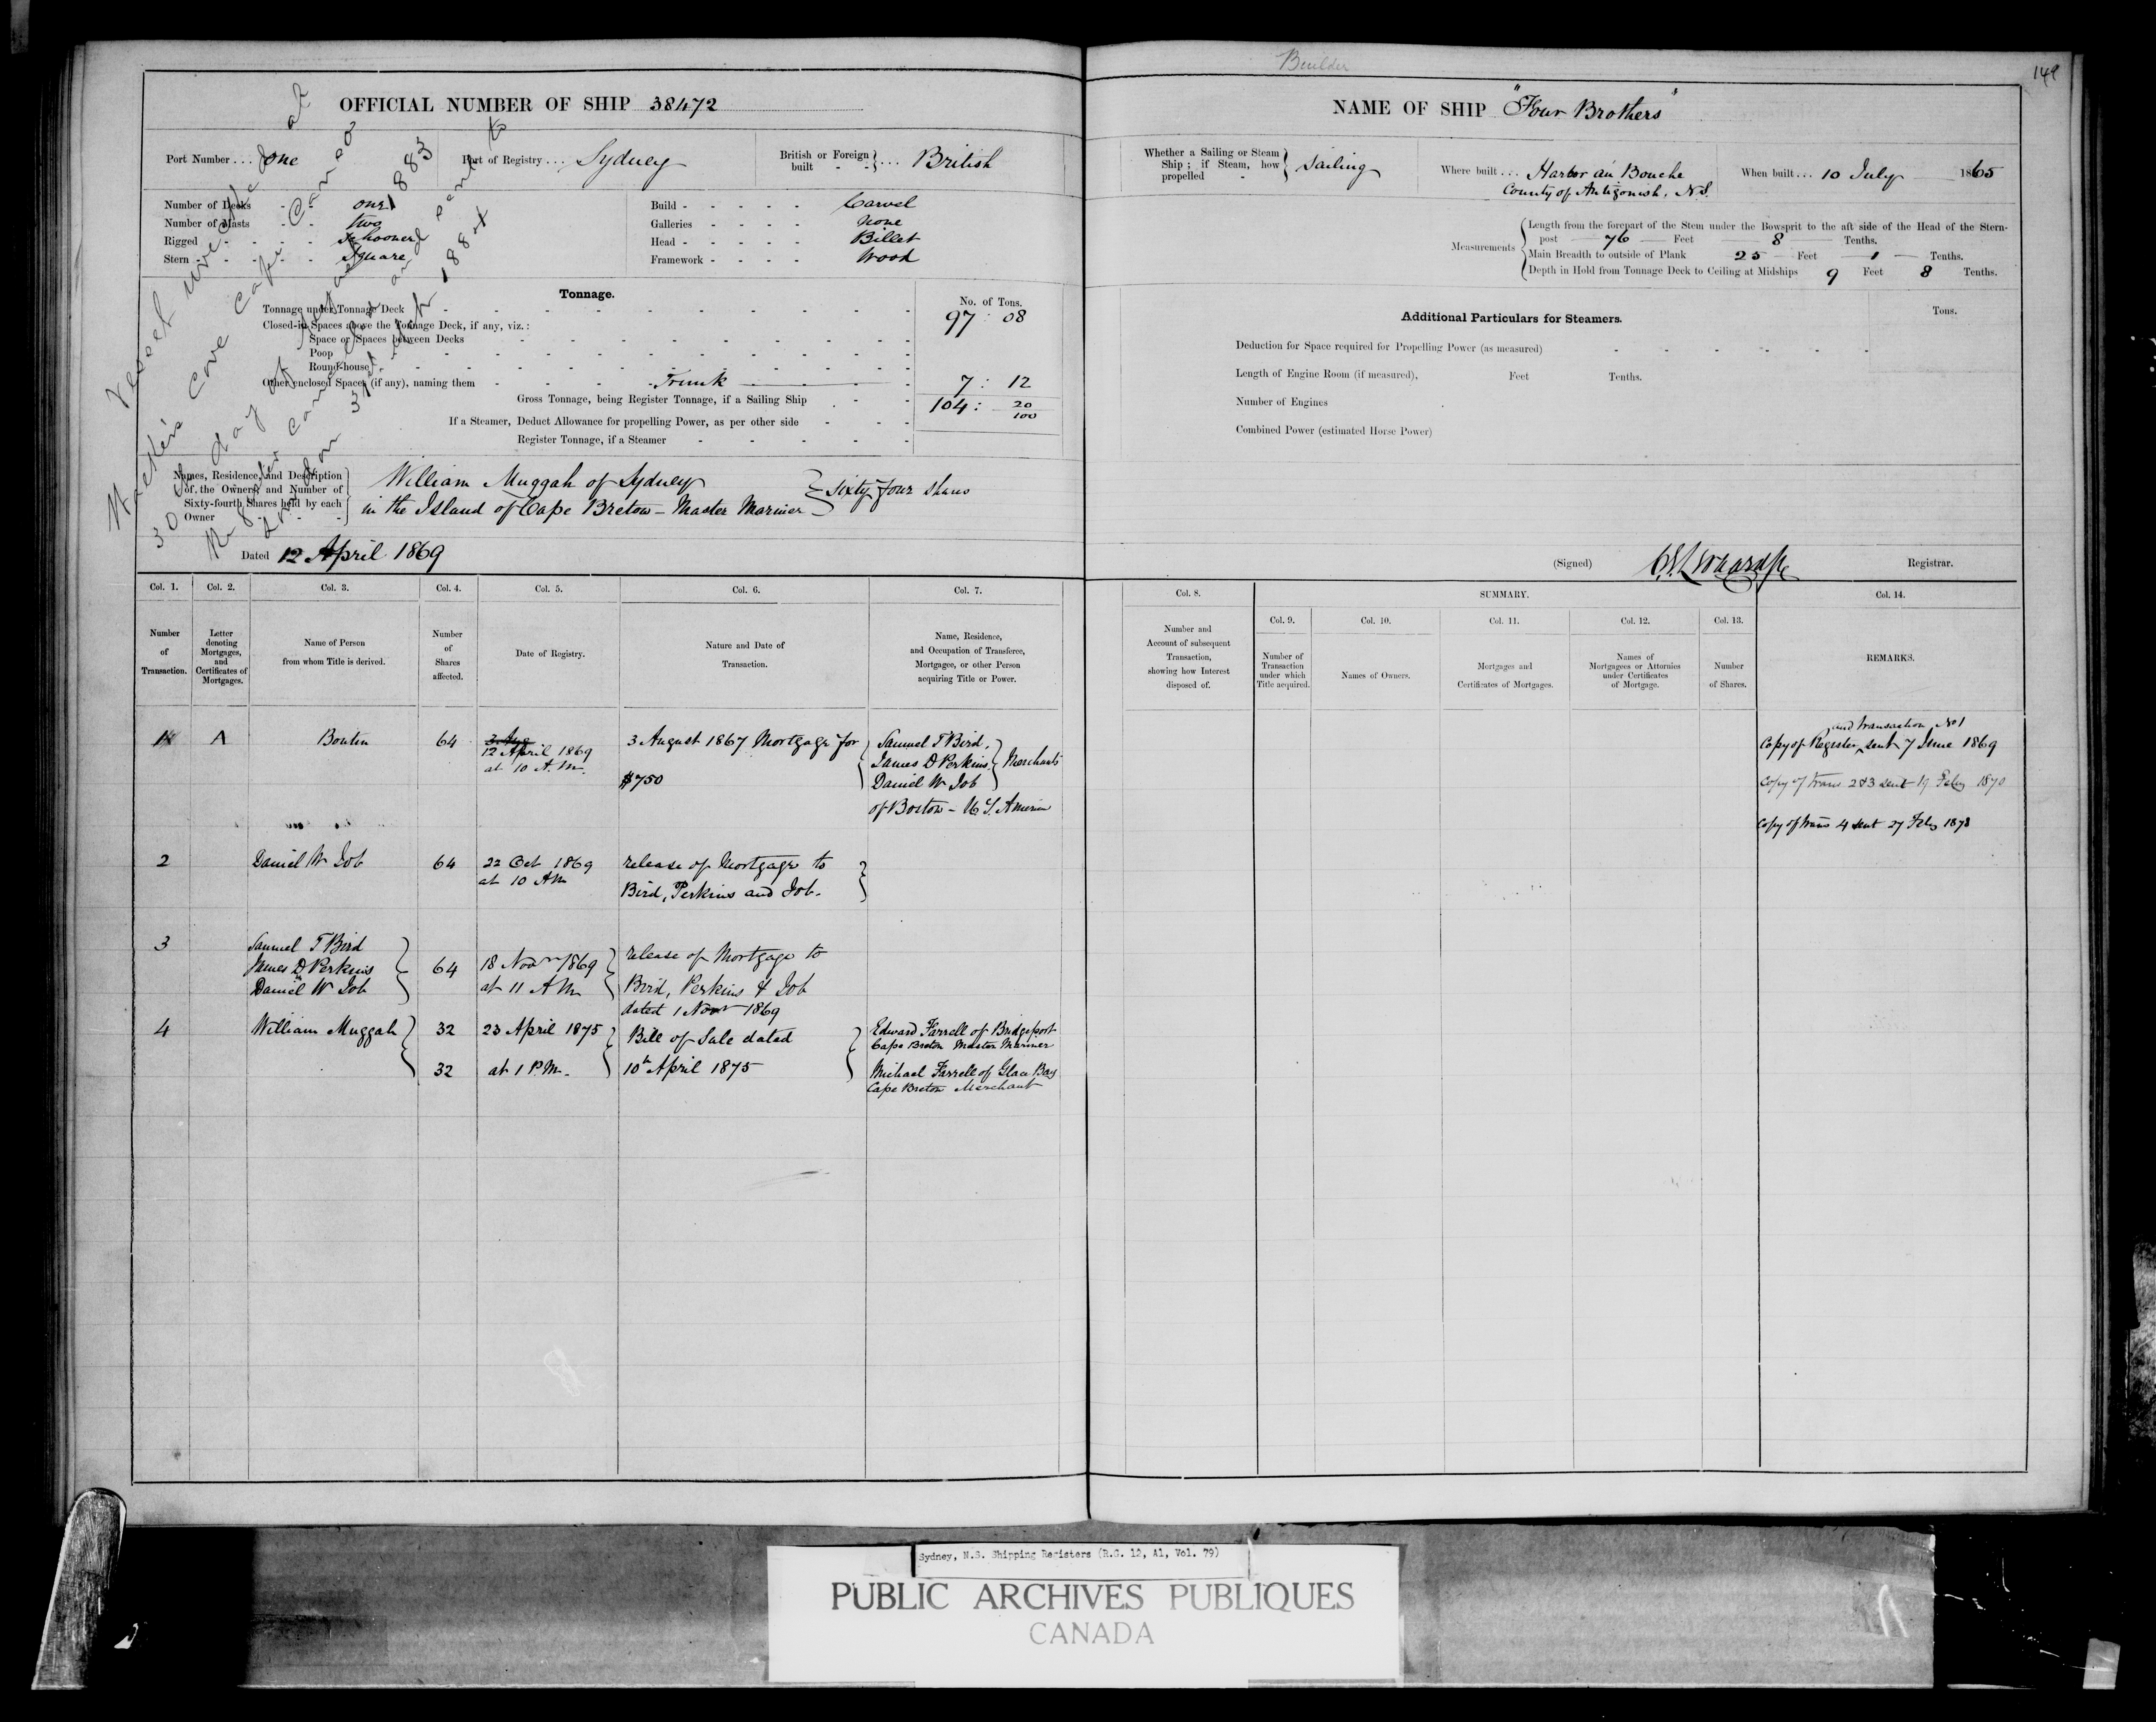 Builder
149
OFFICIAL NUMBER OF SHIP 38472
Port Number ... One
Port of Registry ... Sydney
British or Foreign built - - } ... British
Number of Decks - - one
Number of Masts - - two
Rigged - - - - Schooner
Stern - - - - - Square
Build - - - - - Carvel
Galleries - - - - none
Head - - - - - Billet
Framework - - - - Wood
Tonnage.
No. of Tons.
Tonnage under Tonnage Deck - - - 97 : 08
Closed-in Spaces above the Tonnage Deck, if any, viz.:
Space or Spaces between Decks
Poop
Round-house
Other enclosed Spaces (if any), naming them - Trunk 7 : 12
Gross Tonnage, being Register Tonnage, if a Sailing Ship 104 : 20/100
If a Steamer, Deduct Allowance for propelling Power, as per other side
Register Tonnage, if a Steamer
Vessel
Cove Cape
30 day of 1883
Names, Residence, and Description of the Owners, and Number of Sixty-fourth Shares held by each Owner
William Muggah of Sydney
in the Island of Cape Breton - Master Mariner } Sixty four Shares
Dated 12 April 1869
NAME OF SHIP "Four Brothers"
Whether a Sailing or Steam Ship; if Steam, how propelled - } Sailing
Where built ... Harbor au Bouche
County of Antigonish, N.S.
When built ... 10 July 1865
Measurements
Length from the forepart of the Stem under the Bowsprit to the aft side of the Head of the Stern-
post 76 Feet 8 Tenths.
Main Breadth to outside of Plank 25 Feet 1 Tenths.
Depth in Hold from Tonnage Deck to Ceiling at Midships 9 Feet 8 Tenths.
Additional Particulars for Steamers.
Tons.
Deduction for Space required for Propelling Power (as measured)
Length of Engine Room (if measured), Feet Tenths.
Number of Engines
Combined Power (estimated Horse Power)
(Signed) Registrar.
Col. 1. Col. 2. Col. 3. Col. 4. Col. 5. Col. 6. Col. 7.
Number of Transaction.
Letter denoting Mortgages, and Certificates of Mortgages.
Name of Person from whom Title is derived.
Number of Shares affected.
Date of Registry.
Nature and Date of Transaction.
Name, Residence, and Occupation of Transferee, Mortgagee, or other Person acquiring Title or Power.
Col. 8. SUMMARY. Col. 14.
Number and Account of subsequent Transaction, showing how Interest disposed of.
Col. 9. Col. 10. Col. 11. Col. 12. Col. 13.
Number of Transaction under which Title acquired.
Names of Owners.
Mortgages and Certificates of Mortgages.
Names of Mortgagees or Attornies under Certificates of Mortgage.
Number of Shares.
REMARKS.
1 A 64 3 Aug 3 August 1867 Mortgage for Samuel T Bird,
12 April 1869 James D Perkins } Merchants
at 10 A.M. $750 Daniel W Job
of Boston - U S. America
2 Daniel W Job 64 22 Oct 1869 release of Mortgage to
at 10 AM Bird, Perkins and Job.
3 Samuel T Bird
James D Perkins 64 18 Novr 1869 release of Mortgage to
Daniel W Job at 11 AM Bird, Perkins & Job
dated 1 Novr 1869
4 William Muggah 32 23 April 1875 Bill of Sale dated Edward Farrell of Bridgeport
Cape Breton Master Mariner
32 at 1 P.M. 10th April 1875 Michael Farrell of Glace Bay
Cape Breton Merchant
and transaction No 1
Copy of Register sent 7 June 1869
Copy of trans 2&3 sent 19 Feby 1870
Copy of trans 4 sent 27 Feby 1878
Sydney, N.S. Shipping Registers (R.G. 12, A1, Vol. 79)
PUBLIC ARCHIVES PUBLIQUES
CANADA